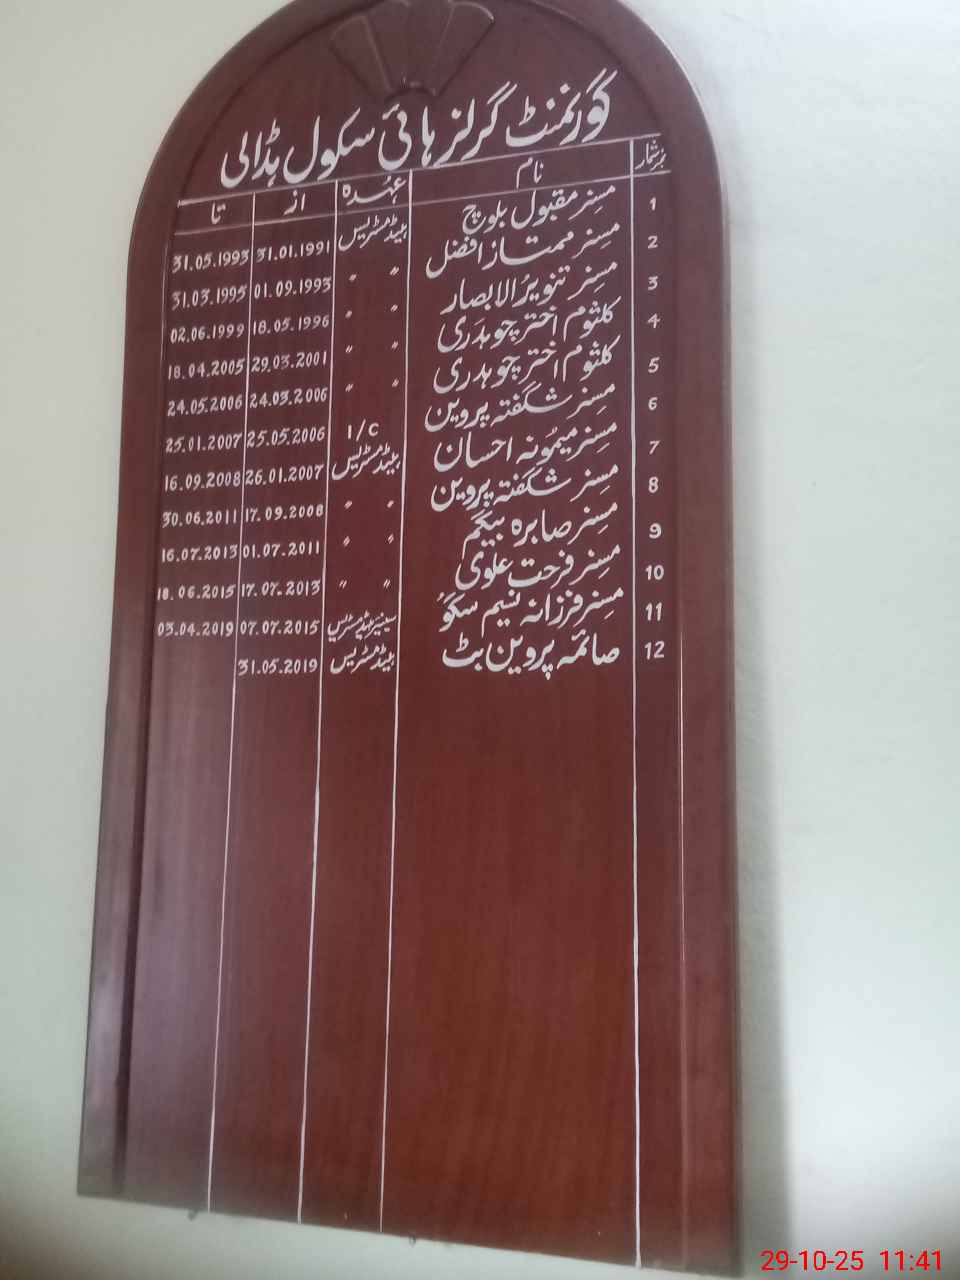 گورنمنٹ گرلز ہائی سکول ہڈالی
نمبر شمار نام عہدہ از تا
1 مسز مقبول بلوچ ہیڈ مسٹریس 31.01.1991 31.05.1993
2 مسز ممتاز افضل " " 01.09.1993 31.03.1995
3 مسز تنویر الابصار " " 18.05.1996 02.06.1999
4 کلثوم اختر چوہدری " " 29.03.2001 18.04.2005
5 کلثوم اختر چوہدری " " 24.03.2006 24.05.2006
6 مسز شگفتہ پروین I/C 25.05.2006 25.01.2007
7 مسز میمونہ احسان ہیڈ مسٹریس 26.01.2007 16.09.2008
8 مسز شگفتہ پروین " " 17.09.2008 30.06.2011
9 مسز صابرہ بیگم " " 01.07.2011 16.07.2013
10 مسز فرحت علوی " " 17.07.2013 18.06.2015
11 مسز فرزانہ نسیم سگو سینئر ہیڈ مسٹریس 07.07.2015 03.04.2019
12 صائمہ پروین بٹ ہیڈ مسٹریس 31.05.2019
29-10-25 11:41